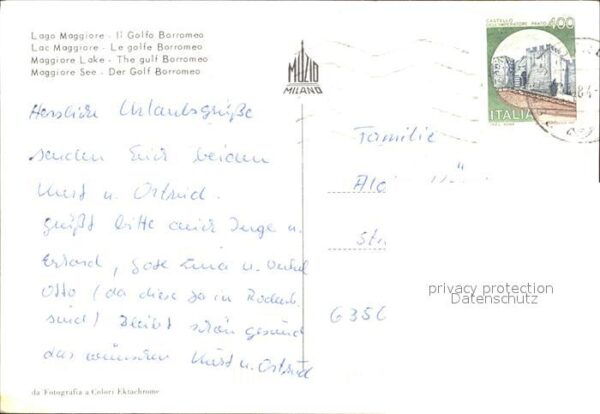 Lago Maggiore - Il Golfo Borromeo
Lac Maggiore - Le golfe Borromeo
Maggiore Lake - The gulf Borromeo
Maggiore See - Der Golf Borromeo
MUZIO
MILANO
CASTELLO
DELL'IMPERATORE PRATO
400
ITALIA
Herzliche Urlaubsgrüße
senden Euch beiden
Kurt u. Ostrud.
Grüßt bitte auch Inge u.
Erhard, Gote Erna u. Onkel
Otto (da diese ja in
sind) Bleibt schön gesund
das wünschen Kurt u. Ostrud
Familie
Alo
Str
privacy protection
Datenschutz
da Fotografia a Colori Ektachrome